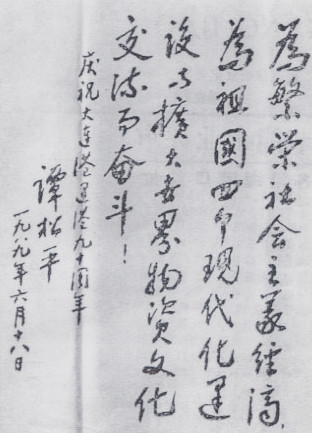 為繁荣社会主義經濟
為祖國四个現代化建
設与擴大世界物资文化
交流而奋斗！
庆祝大连港建港九十周年
譚松平
一九八九年六月十八日